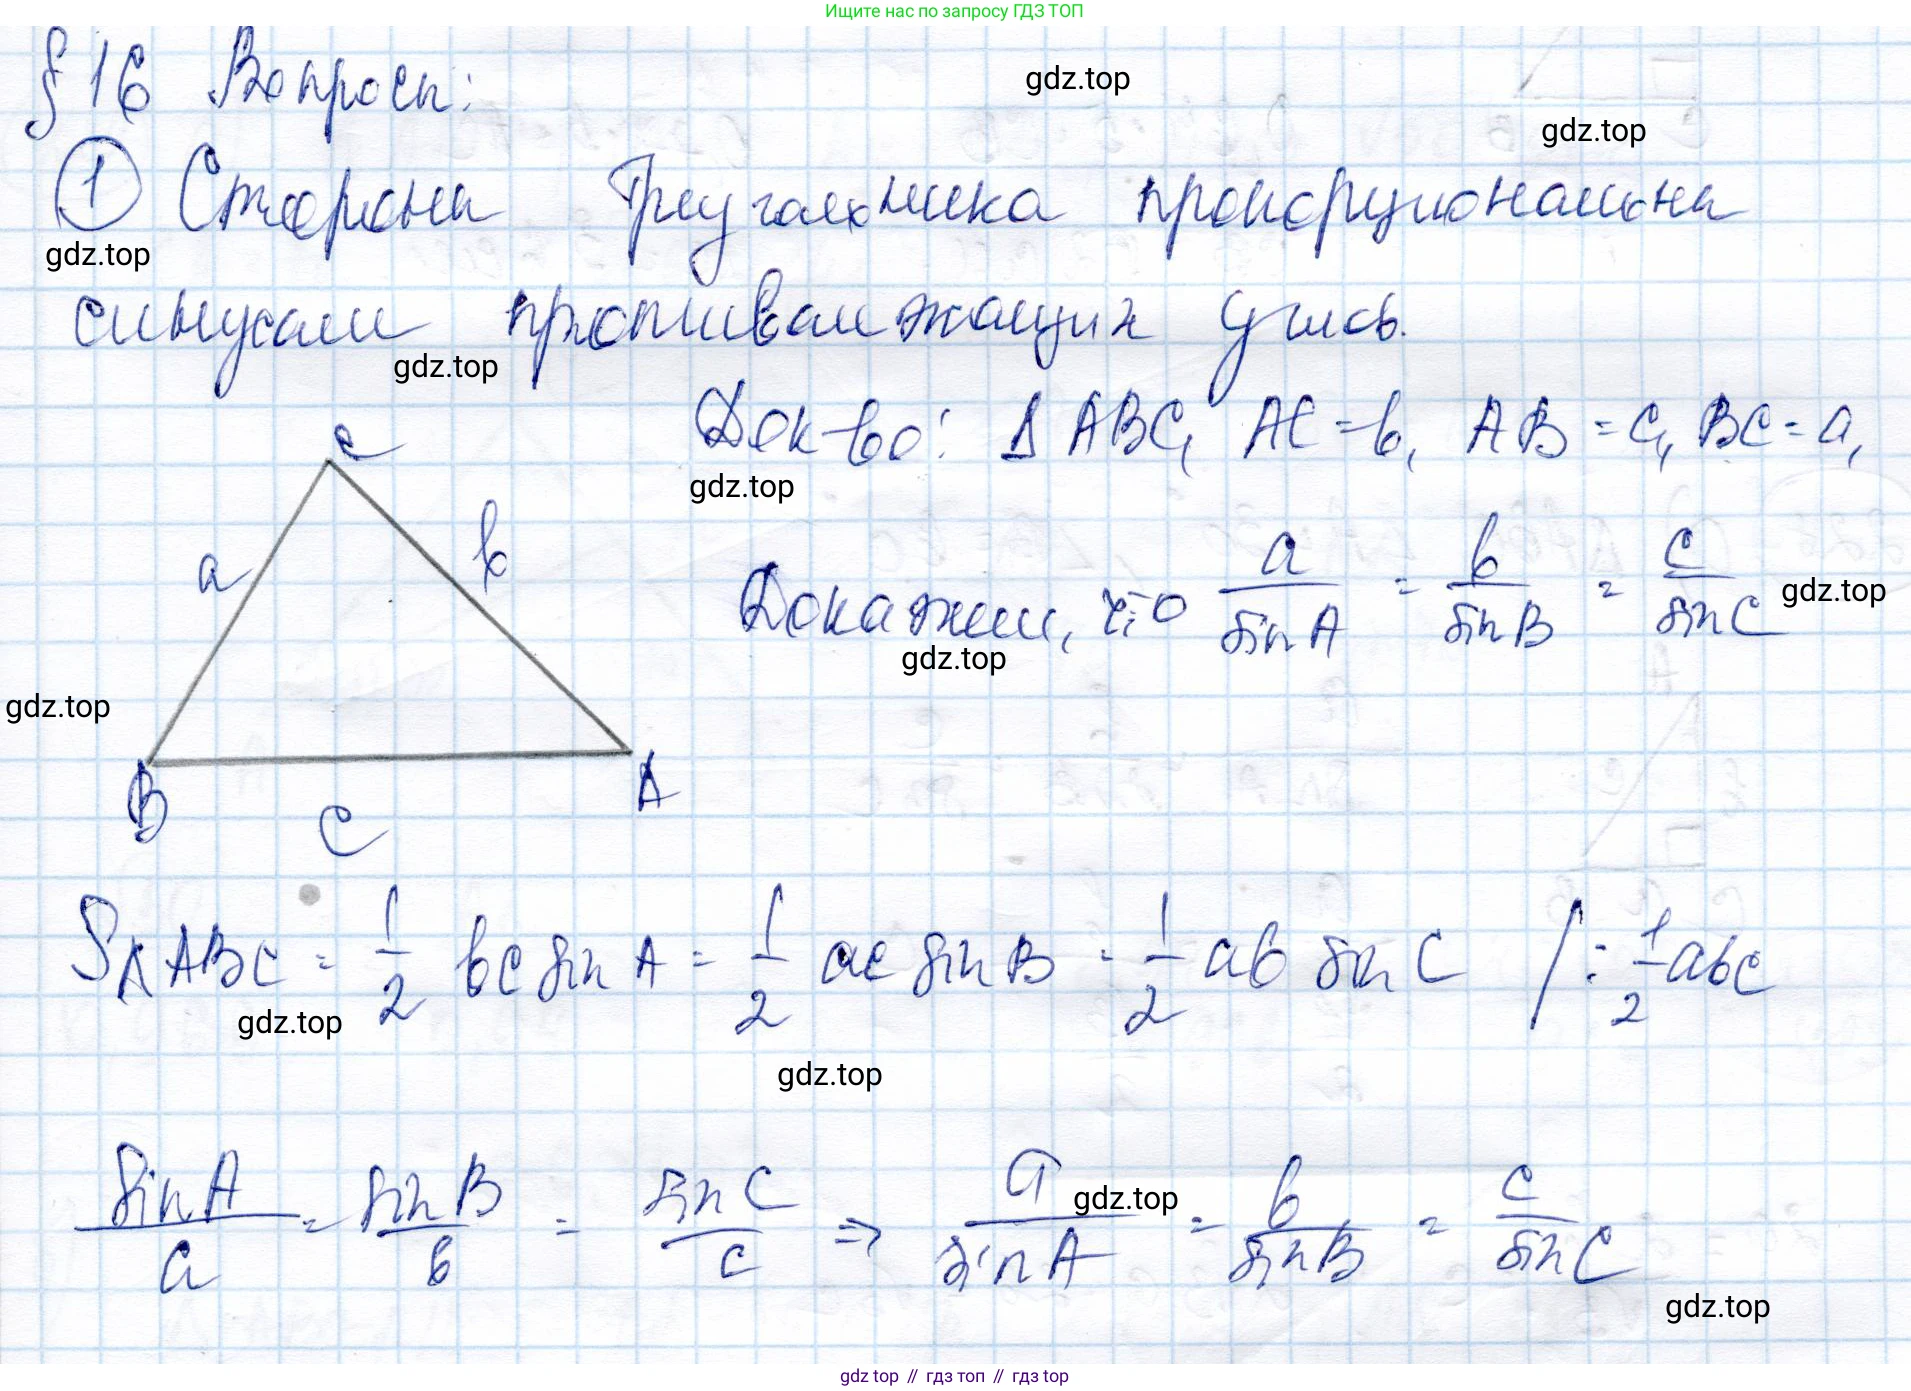 Ищите нас по запросу ГДЗ ТОП
§ 16 Вопросы:
gdz.top
gdz.top
① Стороны треугольника пропорциональны
gdz.top
синусам противолежащих углов.
gdz.top
Док-во: Δ ABC, AC = b, AB = c, BC = a,
gdz.top
C
a
b
B
A
c
Докажем, что a/sin A = b/sin B = c/sin C
gdz.top
gdz.top
gdz.top
SΔABC = 1/2 bc sin A = 1/2 ac sin B = 1/2 ab sin C / : 1/2 abc
gdz.top
gdz.top
sin A/a = sin B/b = sin C/c ⇒ a/sin A = b/sin B = c/sin C
gdz.top
gdz.top
gdz top // гдз топ // гдз top